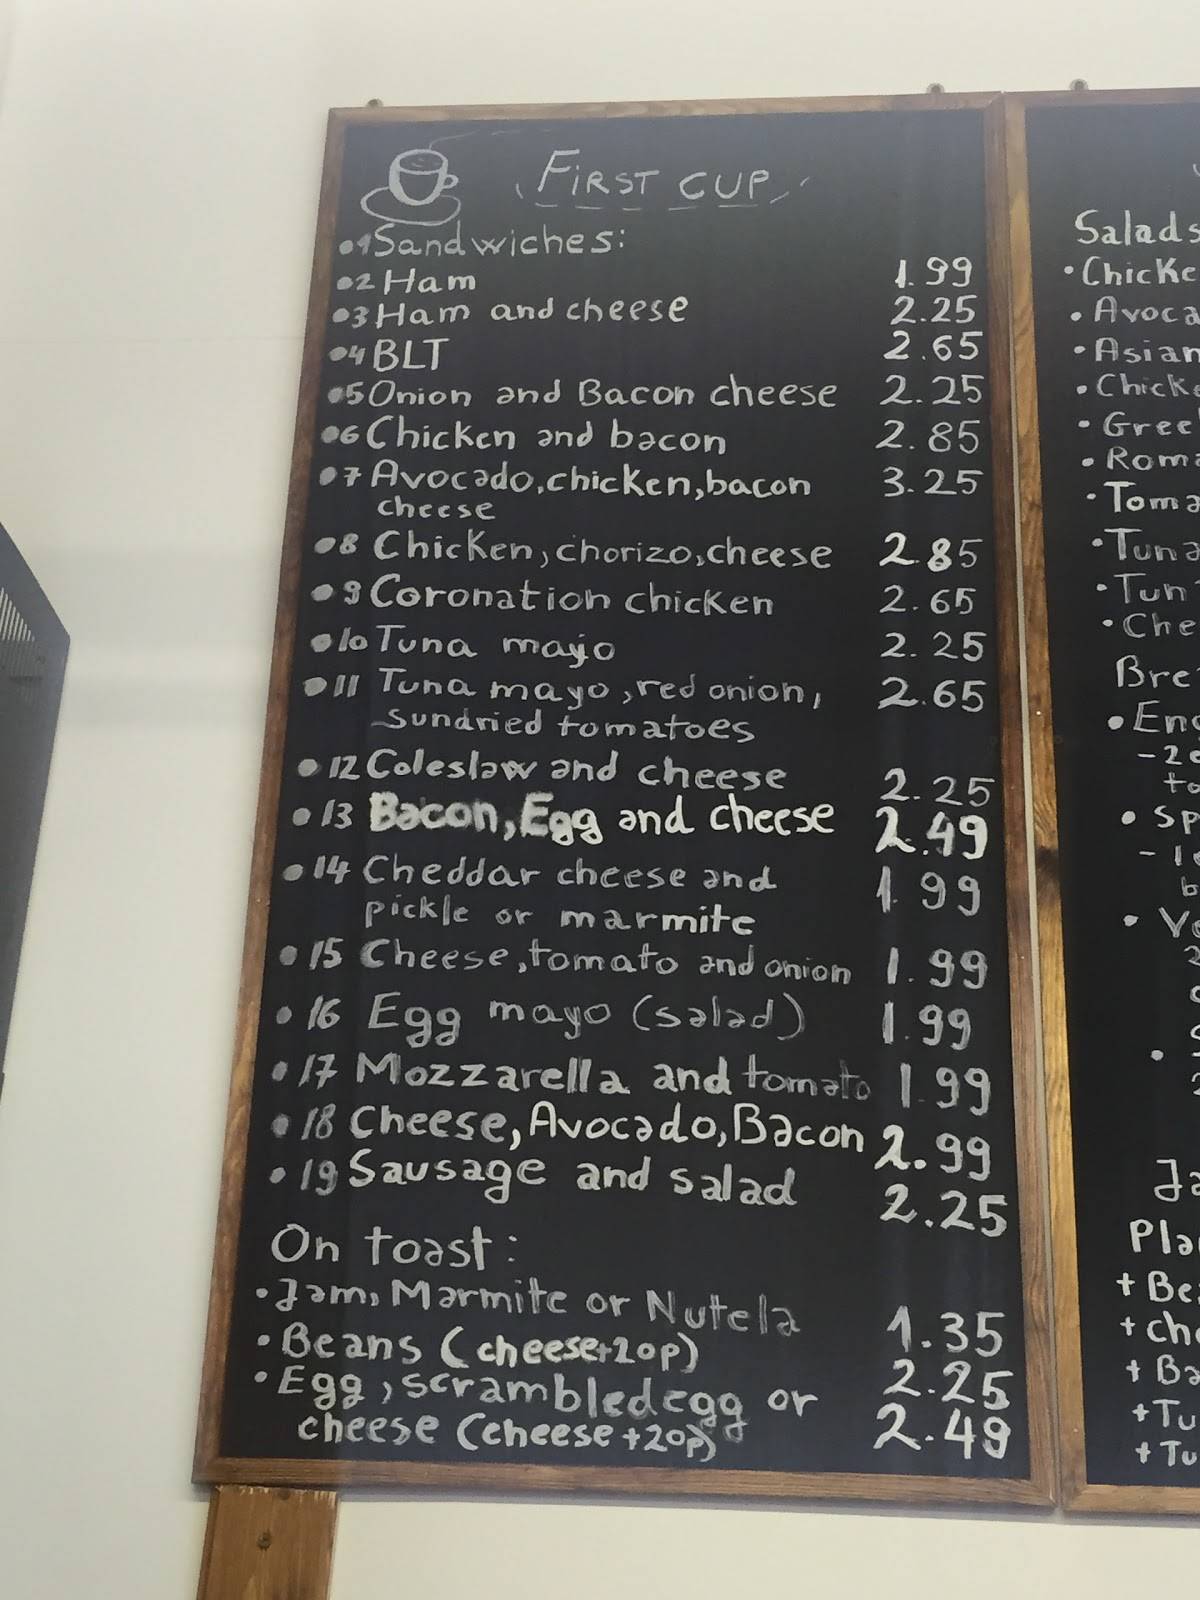 FIRST CUP
1 Sandwiches:
2 Ham 1.99
3 Ham and cheese 2.25
4 BLT 2.65
5 Onion and Bacon cheese 2.25
6 Chicken and bacon 2.85
7 Avocado, chicken, bacon 3.25
cheese
8 Chicken, chorizo, cheese 2.85
9 Coronation chicken 2.65
10 Tuna mayo 2.25
11 Tuna mayo, red onion, 2.65
sundried tomatoes
12 Coleslaw and cheese 2.25
13 Bacon, Egg and cheese 2.49
14 Cheddar cheese and 1.99
pickle or marmite
15 Cheese, tomato and onion 1.99
16 Egg mayo (salad) 1.99
17 Mozzarella and tomato 1.99
18 Cheese, Avocado, Bacon 2.99
19 Sausage and salad 2.25
On toast:
• Jam, Marmite or Nutela 1.35
• Beans (cheese+20p) 2.25
• Egg, scrambled egg or 2.49
cheese (cheese +20p)
Salads
• Chicke
• Avoca
• Asian
• Chick
• Gree
• Roma
• Toma
• Tuna
• Tun
• Che
Bre
• Eng
- 2
to
• Sp
- 1
b
• Ve
2
Ja
Pla
+ Be
+ Ch
+ Ba
+ Tu
+ Tu